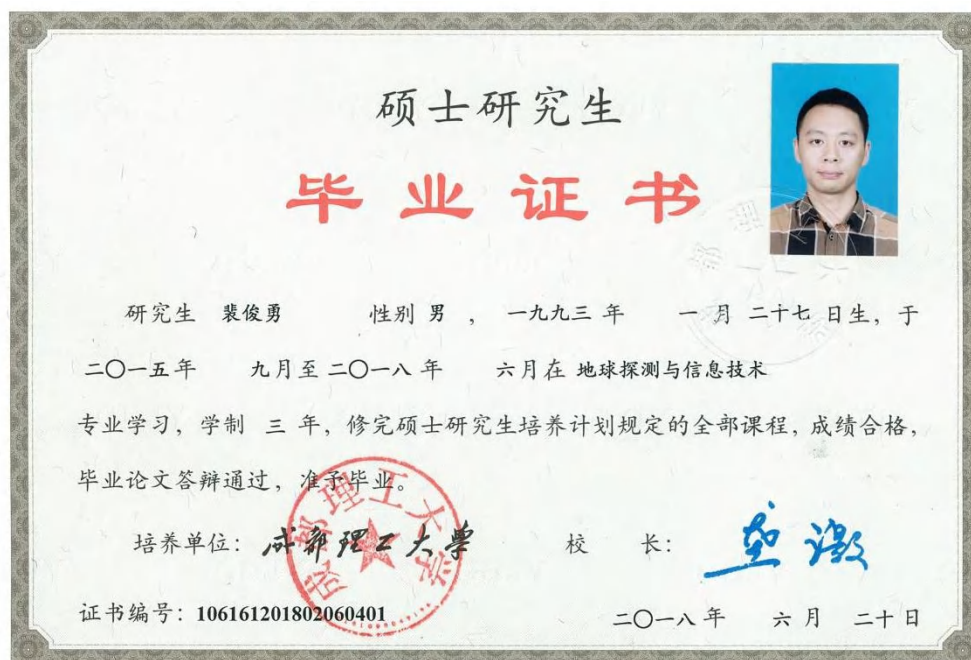 硕士研究生
毕业证书
研究生 裴俊勇 性别 男 , 一九九三 年 一 月 二十七 日生, 于
二〇一五年 九月至二〇一八 年 六月在 地球探测与信息技术
专业学习, 学制 三 年, 修完硕士研究生培养计划规定的全部课程, 成绩合格,
毕业论文答辩通过, 准予毕业。
培养单位: 成都理工大学 校 长:
成都理工大学
证书编号: 106161201802060401 二〇一八 年 六 月 二十 日